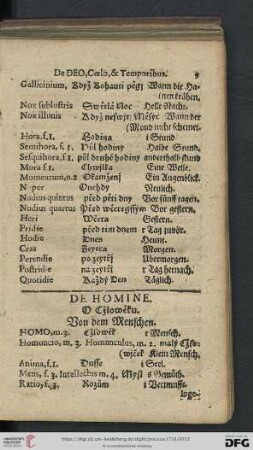 De DEO, Cœlo, & Temporibus. 9
Gallicinium, Když Kohauti pěgj Wann die Ha-
nen krähen.
Nox sublustris Swětlá Noc Helle Nacht.
Nox illunis Když neswjtj Měsýc Wann der
(Mond nicht scheinet.
Hora, f. 1. Hodina i Stund
Semihora, f. 1. Půl hodiny Halbe Stund.
Sesquihora, f. 1. půl druhé hodiny anderthalb stund
Mora f. 1 Chwjlka Eine Weile.
Momentum, n. 2 Okamženj Ein Augenblick.
Nuper Onehdy Neulich.
Nudius quintus před pěti dny Vor fünff tagen.
Nudius quartus Před wčeregsstjm Vor gestern.
Heri Wčera Gestern.
Pridie před tim dnem r Tag zuvor.
Hodie Dnes Heute.
Cras Zeytra Morgen.
Perendie po zeytřj Ubermorgen.
Postridie na zeytřj r Tag hernach.
Quotidie Každý Den Täglich.
DE HOMINE.
O Cžlowěku.
Von dem Menschen.
HOMO, m. 3. Cžlowěk r Mensch.
Homuncio, m. 3. Homunculus, m. 2. malý Cžlo-
(wjček Klein Mensch.
Anima, f. 1. Dusse i Seel.
Mens, f. 3. Intellectus m. 4. Mysl s Gemüth.
Ratio, f. 3. Rozům i Vernunft.